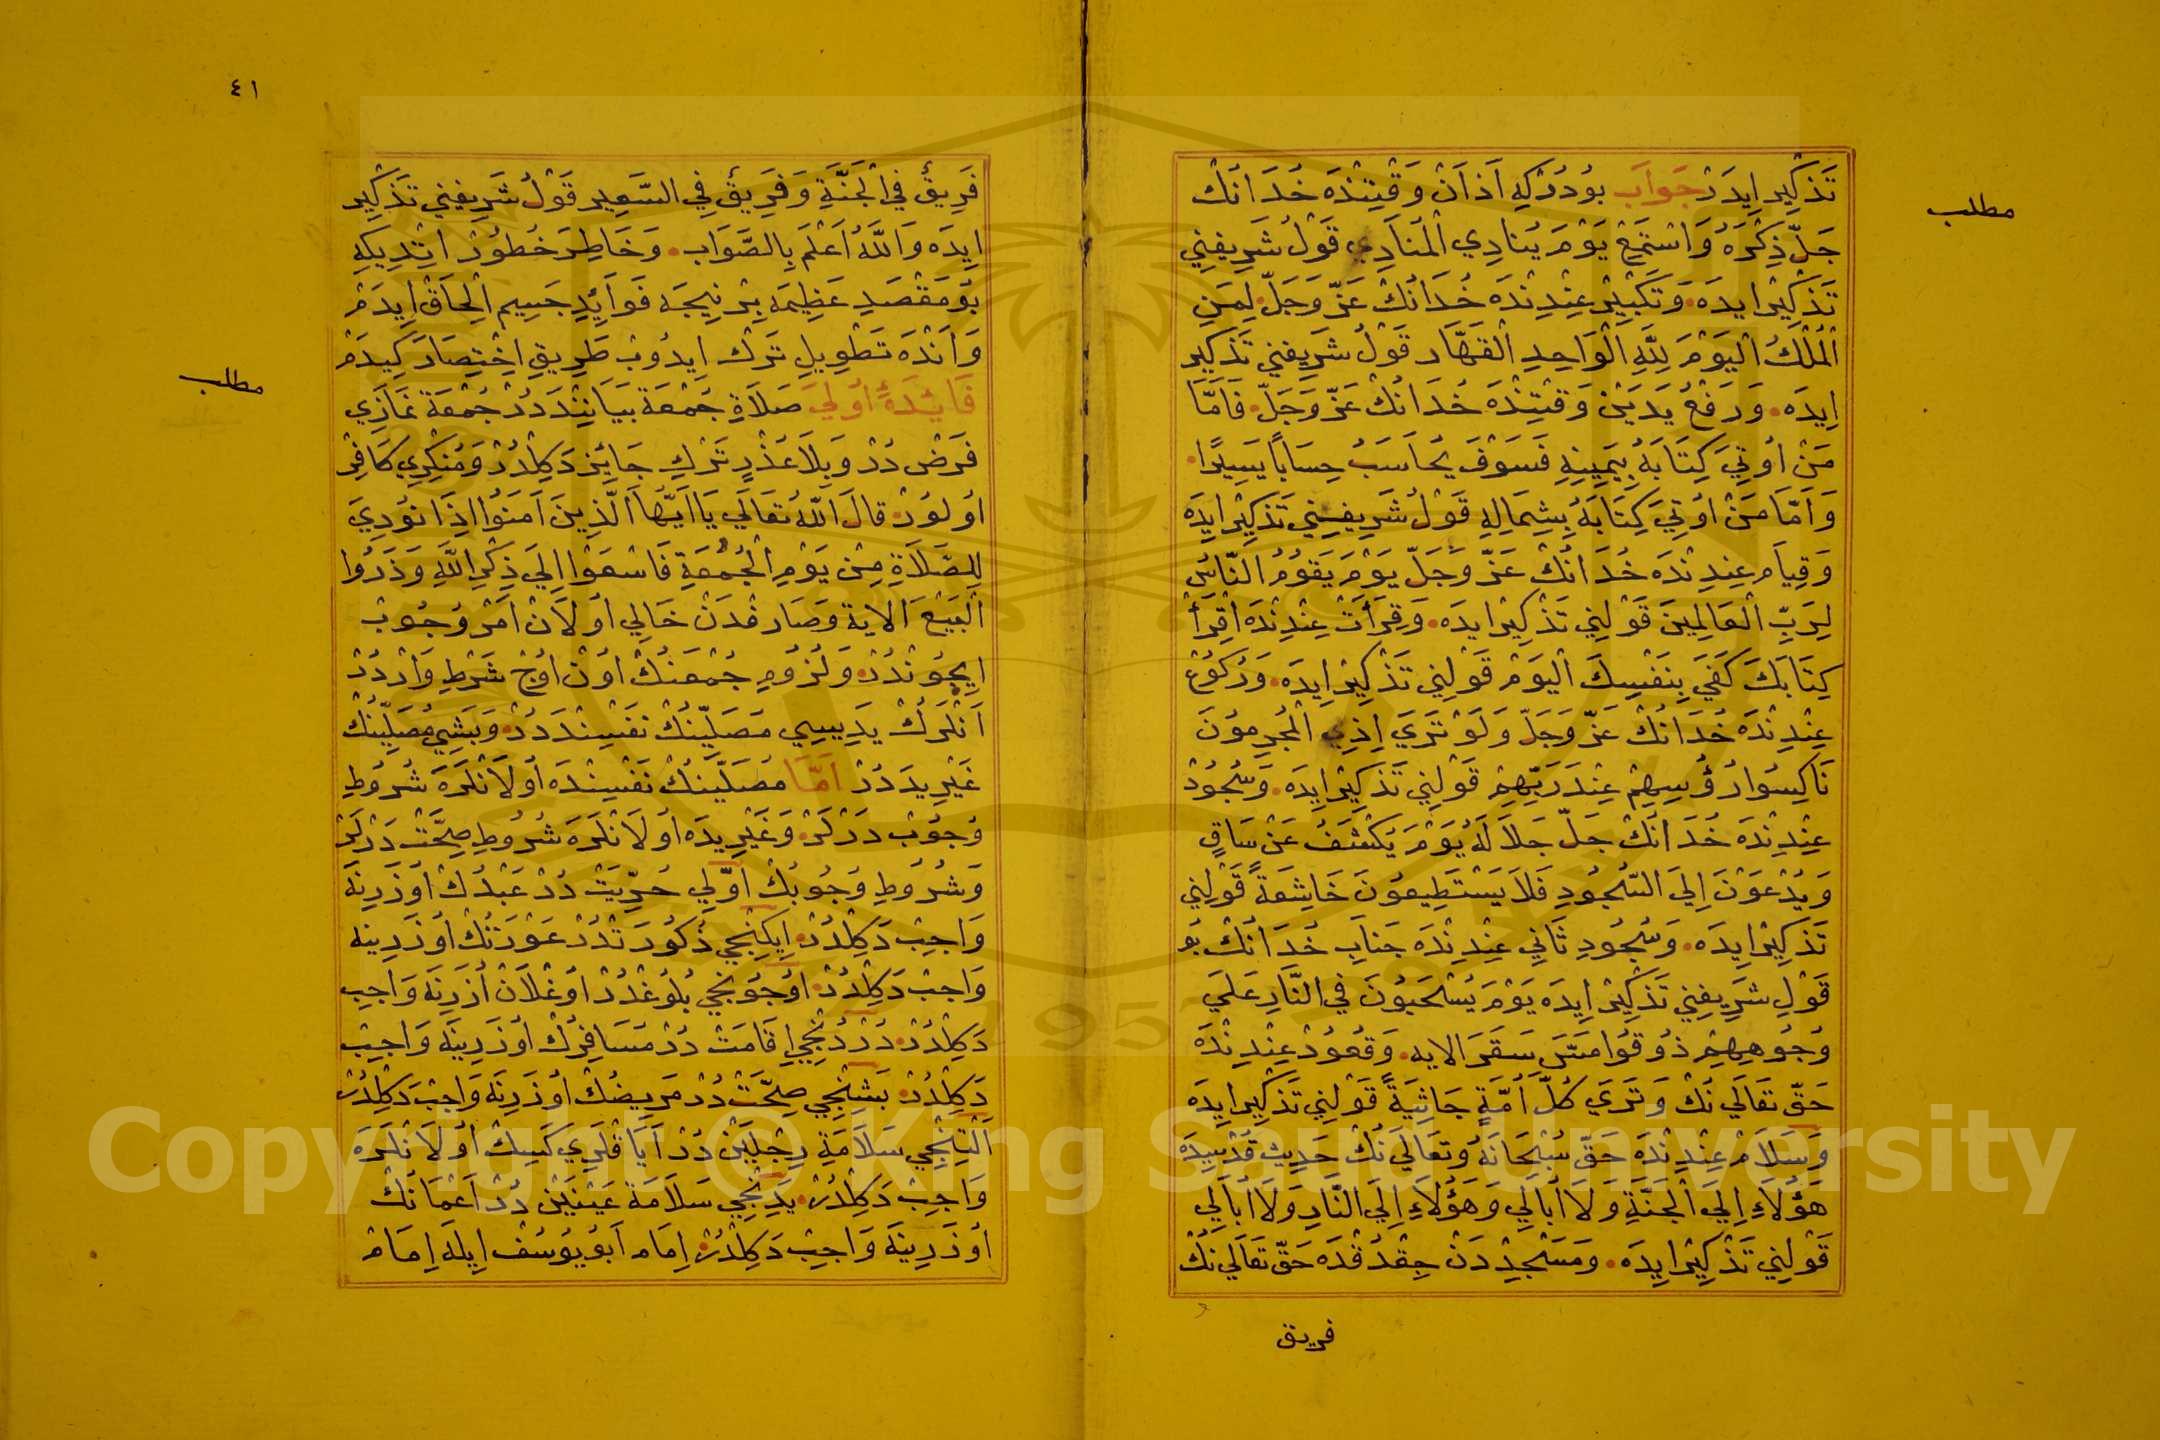 مطلب
تَذْكِير اِيدَرْ جَوَاب بُودُرْكِه اَذَانْ وَقْتِنْدَه خُدَانُكْ
جَلَّ ذِكْرُهُ وَاسْتَمِعْ يَوْمَ يُنَادِي الْمُنَادِي قَوْلُ شَرِيفِنِي
تَذْكِيرْ ايدَه وَتَكْبِيرْ عِنْدِنْدَه خُدَانُكْ عَزَّ وَجَلَّ لِمَنِ
الْمُلْكُ الْيَوْمَ لِلَّهِ الْوَاحِدِ الْقَهَّار قَوْلُ شَرِيفِنِي تَذْكِير
اِيدَه وَرَفْعُ يَدَيْنْ وَقْتِنْدَه خُدَانُكْ عَزَّ وَجَلَّ فَاَمَّا
مَنْ اُوتِيَ كِتَابَهُ بِيَمِينِهِ فَسَوْفَ يُحَاسَبُ حِسَابًا يَسِيرًا
وَاَمَّا مَنْ اُوتِيَ كِتَابَهُ بِشِمَالِهِ قَوْلُ شَرِيفِنِي تَذْكِيرْ ايِدَه
وَقِيَام عِنْدِنْدَه خُدَانُكْ عَزَّ وَجَلَّ يَوْمَ يَقُومُ النَّاسُ
لِرَبِّ الْعَالَمِينَ قَوْلِنِي تَذْكِيرْ ايدَه وَقِرَأَتْ عِنْدِنْدَه اقْرَأْ
كِتَابَكَ كَفَى بِنَفْسِكَ الْيَوْمَ قَوْلِنِي تَذْكِيرْ اِيدَه وَرُكُوعْ
عِنْدِنْدَه خُدَانُكْ عَزَّ وَجَلَّ وَلَوْ تَرَي اِذِي الْمُجْرِمُونَ
نَاكِسُوا رُؤُسِهِمْ عِنْدَ رَبِّهِمْ قَوْلِنِي تَذْكِيرْ اِيدَه وَسُجُودْ
عِنْدِنْدَه خُدَانُكْ جَلَّ جَلَالَهُ يَوْمَ يُكْشَفُ عَنْ سَاقٍ
وَيُدْعَوْنَ اِلَى السُّجُودِ فَلَا يَسْتَطِيعُونَ خَاشِعَةً قَوْلِنِي
تَذْكِيرْ ايدَه وَسُجُودِ ثَانِي عِنْدِنْدَه جَنَابِ خُدَانُكْ بُو
قَوْلِ شَرِيفِنِي تَذْكِيرْ اِيدَه يَوْمَ يُسْحَبُونَ فِي النَّارِ عَلَى
وُجُوهِهِمْ ذُوقُوا مَسَّ سَقَرَ الايه وَقُعُودْ عِنْدِنْدَه
حَقّ تَعَالَي نُكْ وَتَرَي كُلَّ اُمَّةٍ جَاثِيَةً قَوْلِنِي تَذْكِيرْ ايِدَه
وَسَلَامْ عِنْدِنْدَه حَقّ سُبْحَانَهُ وَتَعَالَي نُكْ حَدِيثِ قُدْسِيدَه
هَؤُلَاءِ اِلَى الْجَنَّةِ وَلَا اُبَالِي وَهَؤُلَاءِ اِلَى النَّارِ وَلَا اُبَالِي
قَوْلِنِي تَذْكِيرْ اِيدَه وَمَسْجِدِدَنْ چِقْدُقْدَه حَقّ تَعَالَي نُكْ
فريق
٤١
فَرِيقٌ فِي الْجَنَّةِ وَفَرِيقٌ فِي السَّعِير قَوْلُ شَرِيفِنِي تَذْكِير
ايِدَه وَاللَّهُ اَعْلَمُ بِالصَّوَاب وَخَاطِرَ خُطُورْ اتْدِيكِه
بُو مَقْصَدِ عَظِيمَه بِرْ نِيجَه فَوَائِدِ جَسِيم الْحَاقْ اِيدَمْ
وَاَنْدَه تَطْوِيلِ تَرْك ايدُوبْ طَرِيقِ اِخْتِصَارَ كِيدَمْ
مطلب
فَائِدَۀِ اُولَي صَلَاةِ جُمْعَة بَيَانِنْدَدُرْ جُمْعَة نَمَازِي
فَرَضْ دُرْ وَبِلَا عُذْرٍ تَرْكِ جَائِز دَكِلْدُرْ وَمُنْكِرِي كَافِرْ
اُولُورْ قالَ اللَّهُ تَعَالَي يَا اَيُّهَا الَّذِينَ آمَنُوا اِذَا نُودِيَ
لِلصَّلَاةِ مِنْ يَوْمِ الْجُمُعَةِ فَاسْعَوْا اِلَي ذِكْرِ اللَّهِ وَذَرُوا
الْبَيْعَ الاية وَصَارِفْدَنْ خَالِي اولَانْ اَمْر وُجُوبْ
اِيچُونْدُرْ وَلُزُومِ جُمْعَنُكْ اونْ اوُچْ شَرْطِ وَارْدُرْ
اَنْلَرُكْ يَدِيسِي مُصَلِّينُكْ نَفْسِنْدَدُرْ وَبَشِي مُصَلِّينُكْ
غَيْرِيدَدُرْ اَمَّا مُصَلِّينُكْ نَفْسِنْدَه اُولَانْلَرَه شُرُوطِ
وُجُوبْ دَرْلَرْ وَغَيْرِيدَه اُولَانْلَرَه شُرُوطِ صِحَّتْ دَرْلَرْ
وَشُرُوطِ وُجُوبُكْ اوَّلِي حُرِّيَتْ دُرْ عَبْدُكْ اُوزَرِنَه
وَاجِبْ دَكِلْدُرْ اِيكِنْجِي ذُكُورَتْدُرْ عَوْرَتُكْ اُوزَرِينه
وَاجِبْ دَكِلْدُرْ اُوجُونْجِي بُلُوغْدُرْ اوُغْلَانْ اُزَرِنَه وَاجِب
دَكِلْدُرْ دُرْدُنْجِي اِقَامَتْ دُرْ مُسَافِرُكْ اُوزَرِينَه وَاجِبْ
دَكِلْدُرْ بَشِنْجِي صِحَّتْ دُرْ مَرِيضُكْ اُوزَرِنَه وَاجِبْ دَكِلْدُرْ
اَلْتِنْجِي سَلَامَةِ رِجْلَيْنْ دُرْ اَيَاقْلَرِي كَسِكْ اُولَانْلَرَه
وَاجِبْ دَكِلْدُرْ يَدِنْجِي سَلَامَة عَيْنَيْنْ دُرْ اَعْمَانُكْ
اُوزَرِينَه وَاجِبْ دَكِلْدُرْ اِمَام اَبُو يُوسُفْ اِيلَه اِمَامْ
Copyright © King Saud University
1957